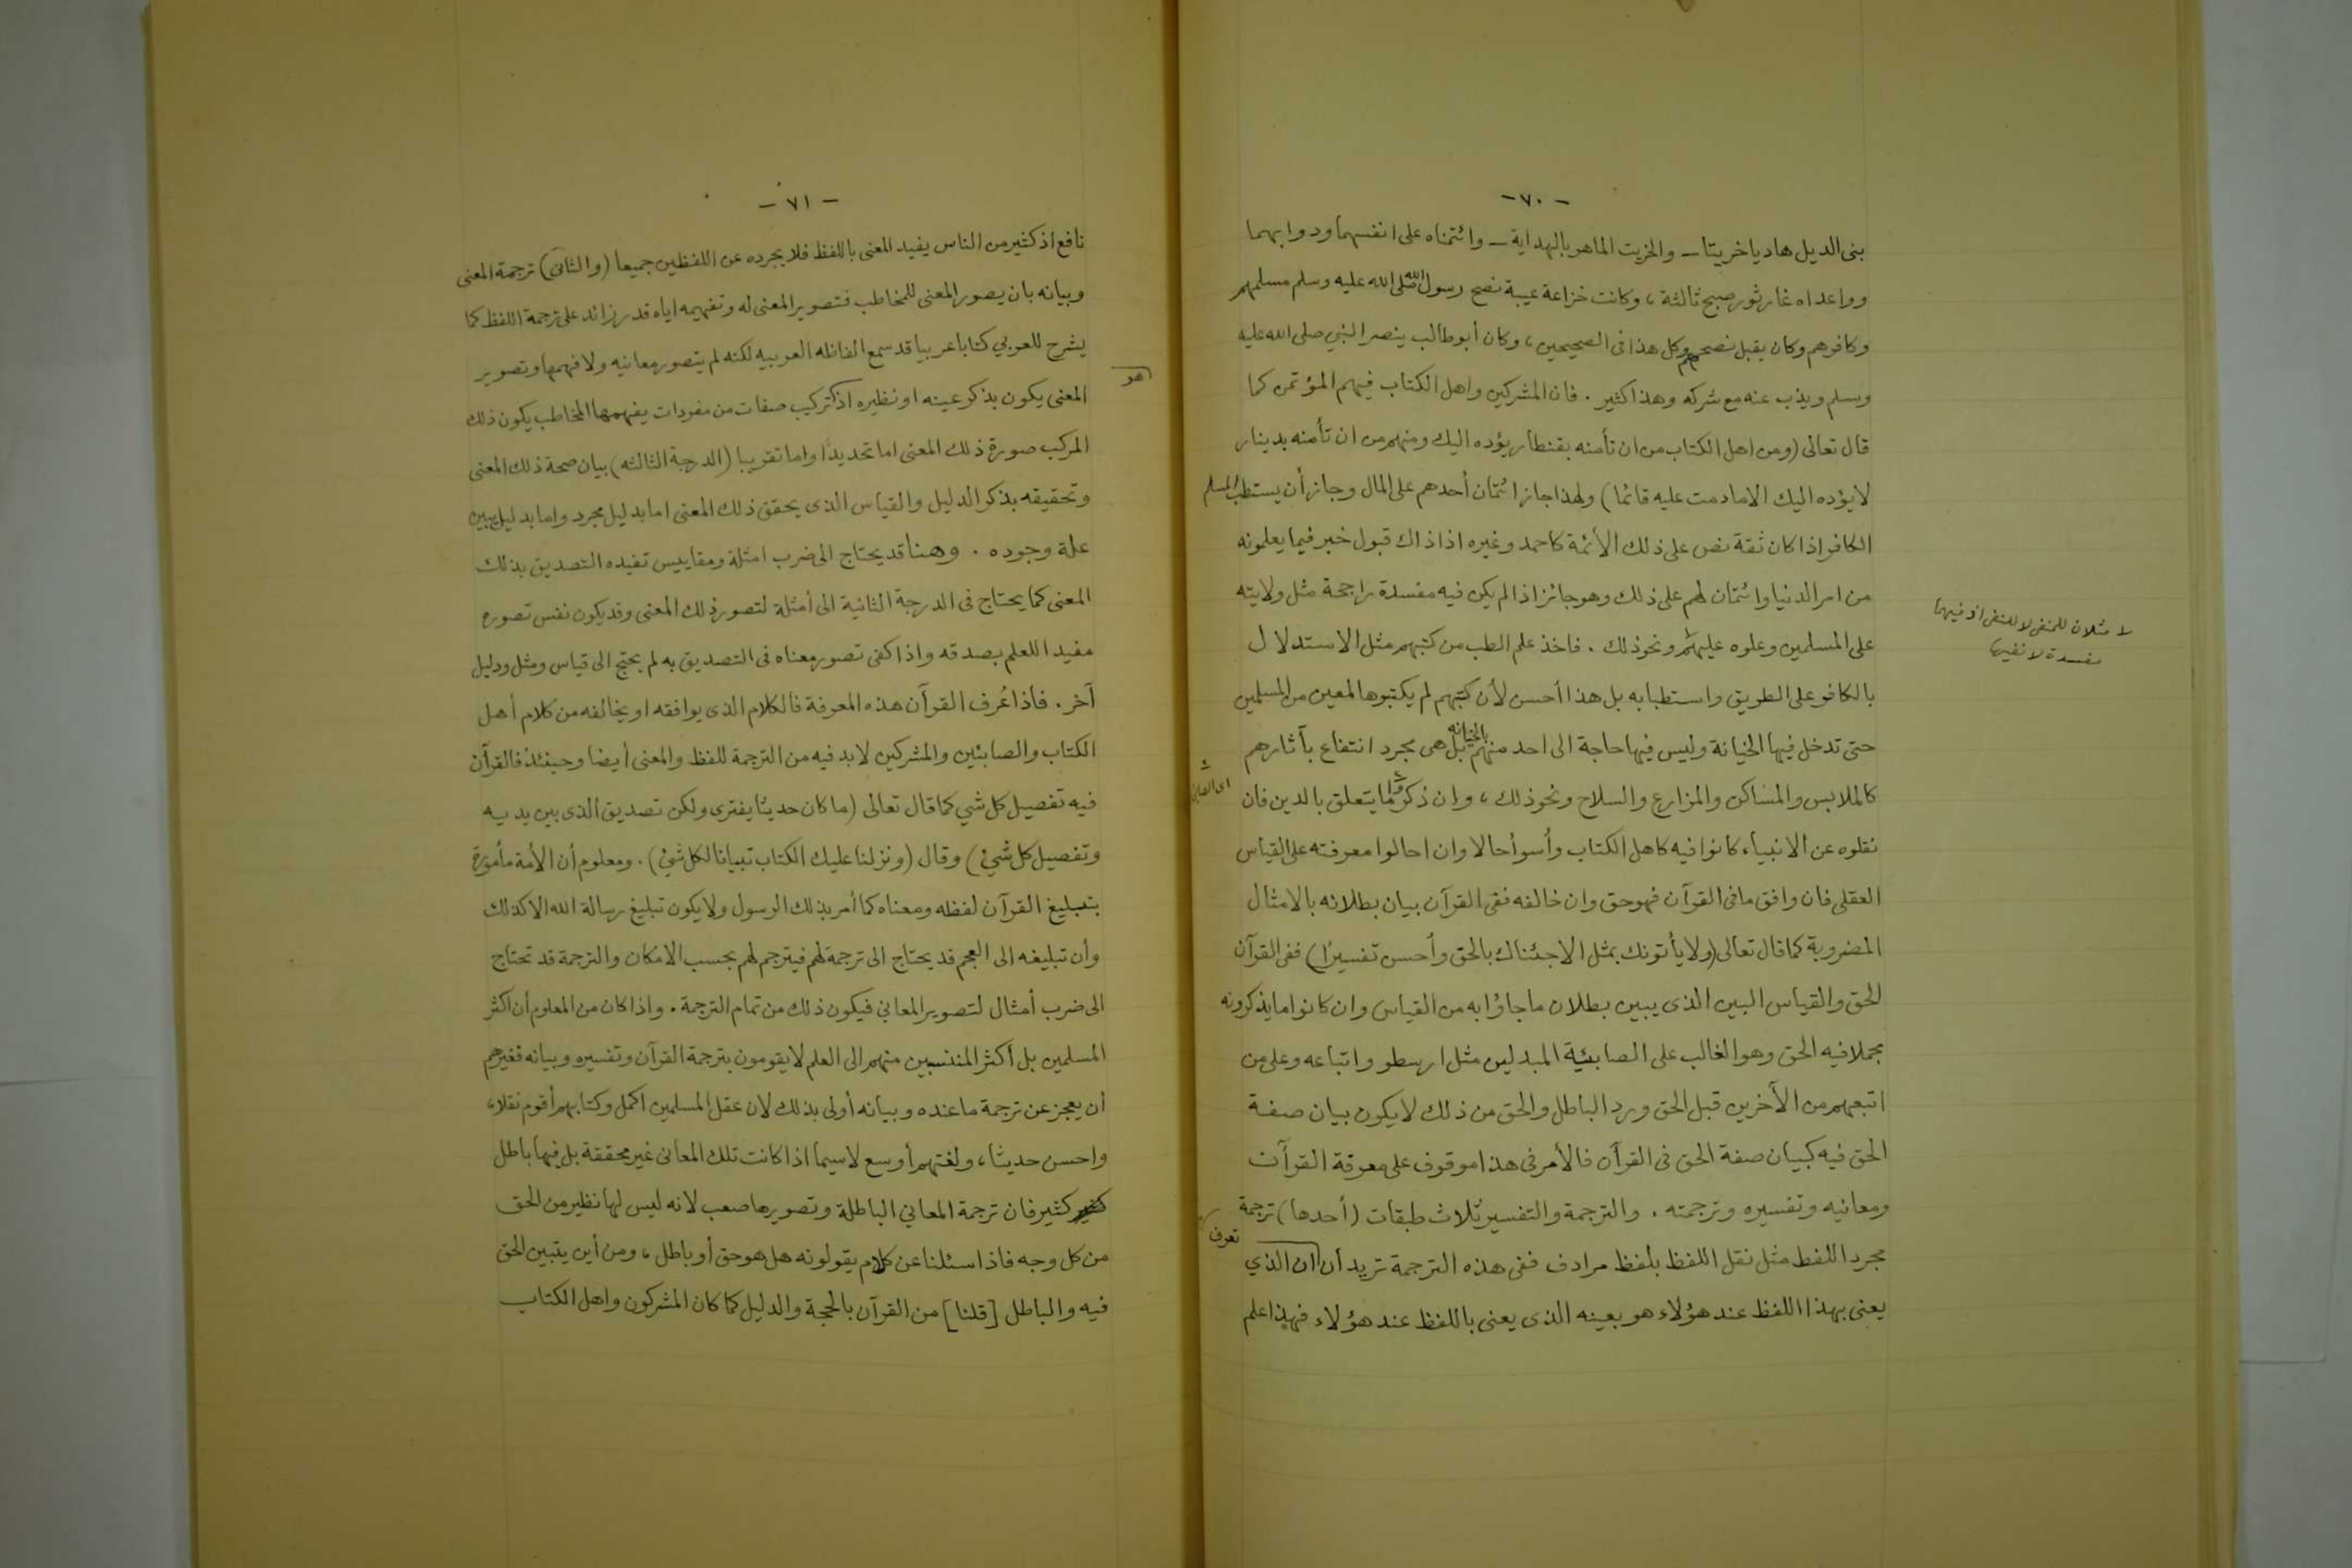 - ٧٠ -
بنى الديل هاديا خريتا - والخزيت الماهر بالهداية - وائتمناه على انفسهما ودوابهما
وواعداه غار ثور صبح ثالثة ، وكانت خزاعة عيبة نصح رسول الله صلى الله عليه وسلم مسلمهم
وكافرهم وكان يقبل نصحهم وكل هذا فى الصحيحين ، وكان أبو طالب ينصر النبي صلى الله عليه
وسلم ويذب عنه مع شركه وهذا كثير . فان المشركين واهل الكتاب فيهم المؤتمن كما
قال تعالى (ومن اهل الكتاب من ان تأمنه بقنطار يؤده اليك ومنهم من ان تأمنه بدينار
لا يؤده اليك الا ما دمت عليه قائما) ولهذا جاز ائتمان أحدهم على المال وجاز أن يستطب المسلم
الكافر اذا كان ثقة نص على ذلك الأئمة كاحمد وغيره اذ ذاك قبول خبر فيما يعلمونه
من امر الدنيا وائتمان لهم على ذلك وهو جائز اذا لم يكن فيه مفسدة راجحة مثل ولايته
على المسلمين وعلوه عليهم ونحو ذلك . فاخذ علم الطب من كتبهم مثل الاستدلال
بالكافر على الطريق واستطبابه بل هذا أحسن لأن كتبهم لم يكتبوها لمعين من المسلمين
حتى تدخل فيها الخيانة وليس فيها حاجة الى احد منهم بالخيانة بل هى مجرد انتفاع بآثارهم
كالملابس والمساكن والمزارع والسلاح ونحو ذلك ، وان ذكروا ما يتعلق بالدين فان
نقلوه عن الانبياء كانوا فيه كاهل الكتاب وأسوأ حالا وان احالوا معرفته على القياس
العقلى فان وافق ما فى القرآن فهو حق وان خالفه ففى القرآن بيان بطلانه بالامثال
المضروبة كما قال تعالى (ولا يأتونك بمثل الا جئناك بالحق وأحسن تفسيرا) ففى القرآن
الحق والقياس البين الذى يبين بطلان ما جاؤا به من القياس وان كانوا ما يذكرونه
مجملا فيه الحق وهو الغالب على الصابئية المبدلين مثل ارسطو واتباعه وعلى من
اتبعهم من الآخرين قبل الحق ورد الباطل والحق من ذلك لا يكون بيان صفة
الحق فيه كبيان صفة الحق فى القرآن فالأمر فى هذا موقوف على معرفة القرآن
ومعانيه وتفسيره وترجمته . والترجمة والتفسير ثلاث طبقات (أحدها) ترجمة
مجرد اللفظ مثل نقل اللفظ بلفظ مرادف ففى هذه الترجمة تريد أن ان الذي
تعرف
يعنى بهذا اللفظ عند هؤلاء هو بعينه الذى يعنى باللفظ عند هؤلاء فهذا علم
مفسدة لا نفيها
- ٧١ -
نافع اذ كثير من الناس يفيد المعنى باللفظ فلا يجرده عن اللفظين جميعا (والثانى) ترجمة المعنى
وبيانه بان يصور المعنى للمخاطب فتصوير المعنى له وتفهيمه اياه قدر زائد على ترجمة اللفظ كما
يشرح للعربي كتابا عربيا قد سمع الفاظه العربيه لكنه لم يتصور معانيه ولا فهمها وتصوير
هو
المعنى يكون بذكر عينه او نظيره اذ تركيب صفات من مفردات يفهمها المخاطب يكون ذلك
المركب صورة ذلك المعنى اما تحديدا واما تقريبا (الدرجة الثالثه) بيان صحة ذلك المعنى
وتحقيقه بذكر الدليل والقياس الذى يحقق ذلك المعنى اما بدليل مجرد واما بدليل يبين
علة وجوده . وهنا قد يحتاج الى ضرب امثلة ومقاييس تفيده التصديق بذلك
المعنى كما يحتاج فى الدرجة الثانية الى أمثلة لتصور ذلك المعنى وقد يكون نفس تصوره
مفيدا للعلم بصدقه واذا كفى تصور معناه فى التصديق به لم يحتج الى قياس ومثل ودليل
آخر . فاذا عُرف القرآن هذه المعرفة فالكلام الذى يوافقه او يخالفه من كلام أهل
الكتاب والصابئين والمشركين لا بد فيه من الترجمة للفظ والمعنى أيضا وحينئذ فالقرآن
فيه تفصيل كل شي كما قال تعالى (ما كان حديثا يفترى ولكن تصديق الذى بين يديه
وتفصيل كل شئ) وقال (ونزلنا عليك الكتاب تبيانا لكل شئ) . ومعلوم أن الأمة مأمورة
بتبليغ القرآن لفظه ومعناه كما أمر بذلك الرسول ولا يكون تبليغ رسالة الله الا كذلك
وأن تبليغه الى العجم قد يحتاج الى ترجمة لهم فيترجم لهم بحسب الامكان والترجمة قد تحتاج
الى ضرب أمثال لتصوير المعاني فيكون ذلك من تمام الترجمة . واذا كان من المعلوم أن اكثر
المسلمين بل أكثر المنتسبين منهم الى العلم لا يقومون بترجمة القرآن وتفسيره وبيانه فغيرهم
أن يعجز عن ترجمة ما عنده وبيانه أولى بذلك لان عقل المسلمين اكمل وكتابهم أقوم نقلا ،
واحسن حديثا ، ولغتهم أوسع لاسيما اذا كانت تلك المعانى غير محققة بل فيها باطل
كثير فان ترجمة المعاني الباطلة وتصويرها صعب لانه ليس لها نظير من الحق
من كل وجه فاذا سئلنا عن كلام يقولونه هل هو حق أو باطل ، ومن أين يتبين الحق
فيه والباطل [قلنا] من القرآن بالحجة والدليل كما كان المشركون واهل الكتاب